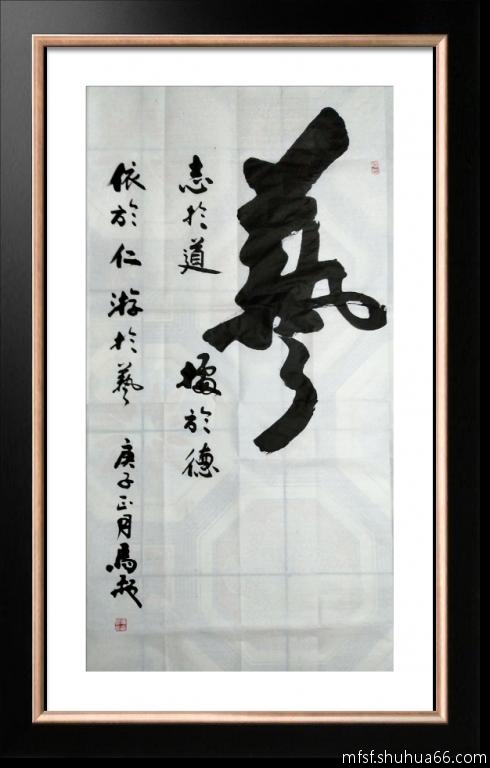 藝
志於道 據於德
依於仁 游於藝 庚子正月馬
mfsf.shuhua66.com